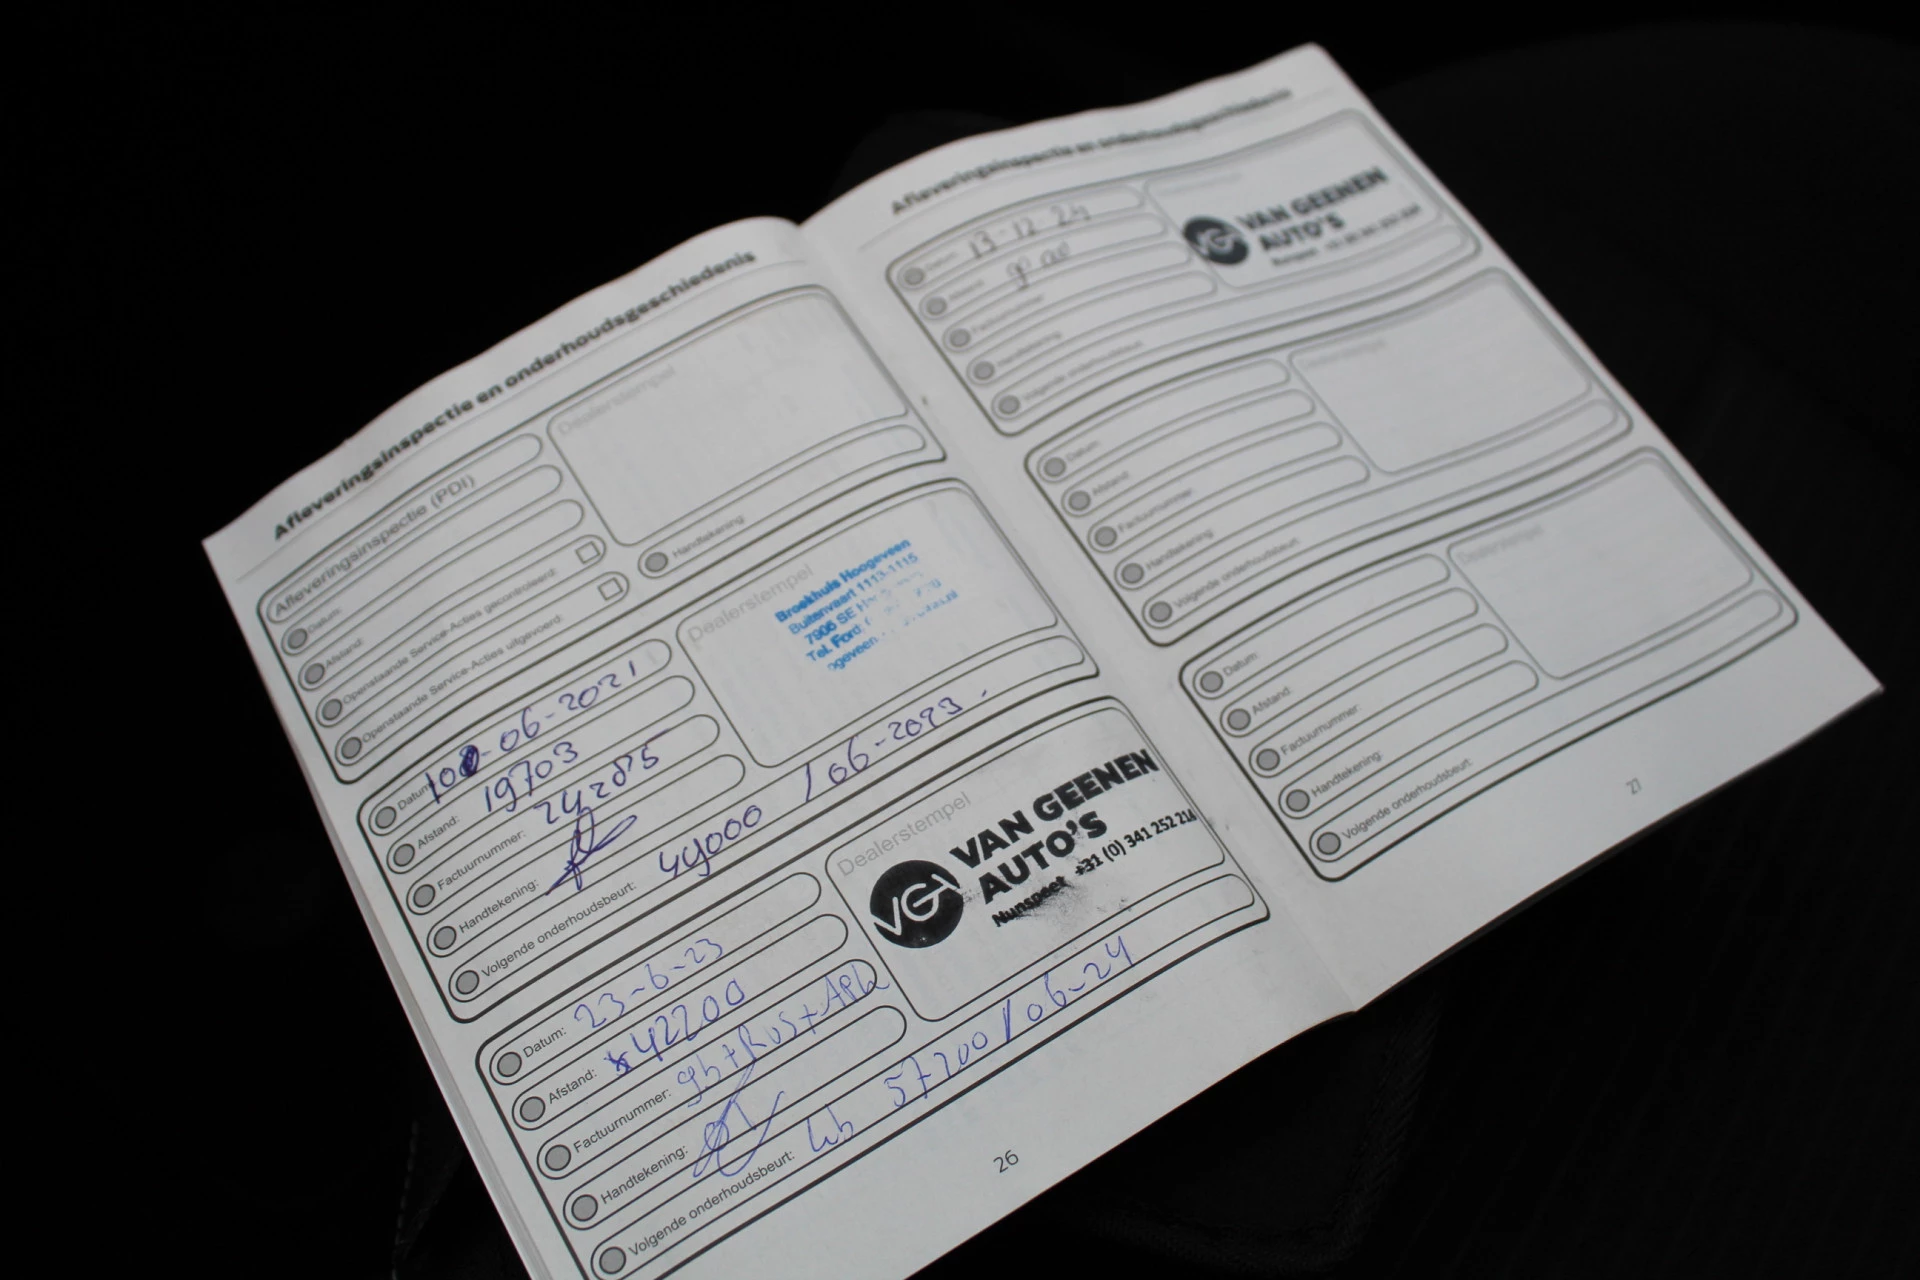 Afleveringsinspectie en onderhoudsgeschiedenis
Afleveringsinspectie (PDI)
Datum:
Afstand:
Openstaande Service-Acties gecontroleerd:
Openstaande Service-Acties uitgevoerd:
Dealerstempel
Handtekening:
Datum: -06-2021
Afstand: 19703
Factuurnummer:
Handtekening:
Volgende onderhoudsbeurt: 49000 / 06-2023.
Dealerstempel
Broekhuis Hoogeveen
Buitenvaart 1113-1115
7905 SE
Tel. Ford:
Datum: 23-6-23
Afstand: 42200
Factuurnummer: gb+Rus+APK
Handtekening:
Volgende onderhoudsbeurt: 57200 / 06-24
Dealerstempel
VGA
VAN GEENEN
AUTO'S
Nunspeet +31 (0) 341 252 214
26
Afleveringsinspectie en onderhoudsgeschiedenis
Datum: 13-12-24
Afstand:
Factuurnummer:
Handtekening:
Volgende onderhoudsbeurt:
VGA
VAN GEENEN
AUTO'S
Datum:
Afstand:
Factuurnummer:
Handtekening:
Volgende onderhoudsbeurt:
Dealerstempel
Datum:
Afstand:
Factuurnummer:
Handtekening:
Volgende onderhoudsbeurt:
Dealerstempel
27